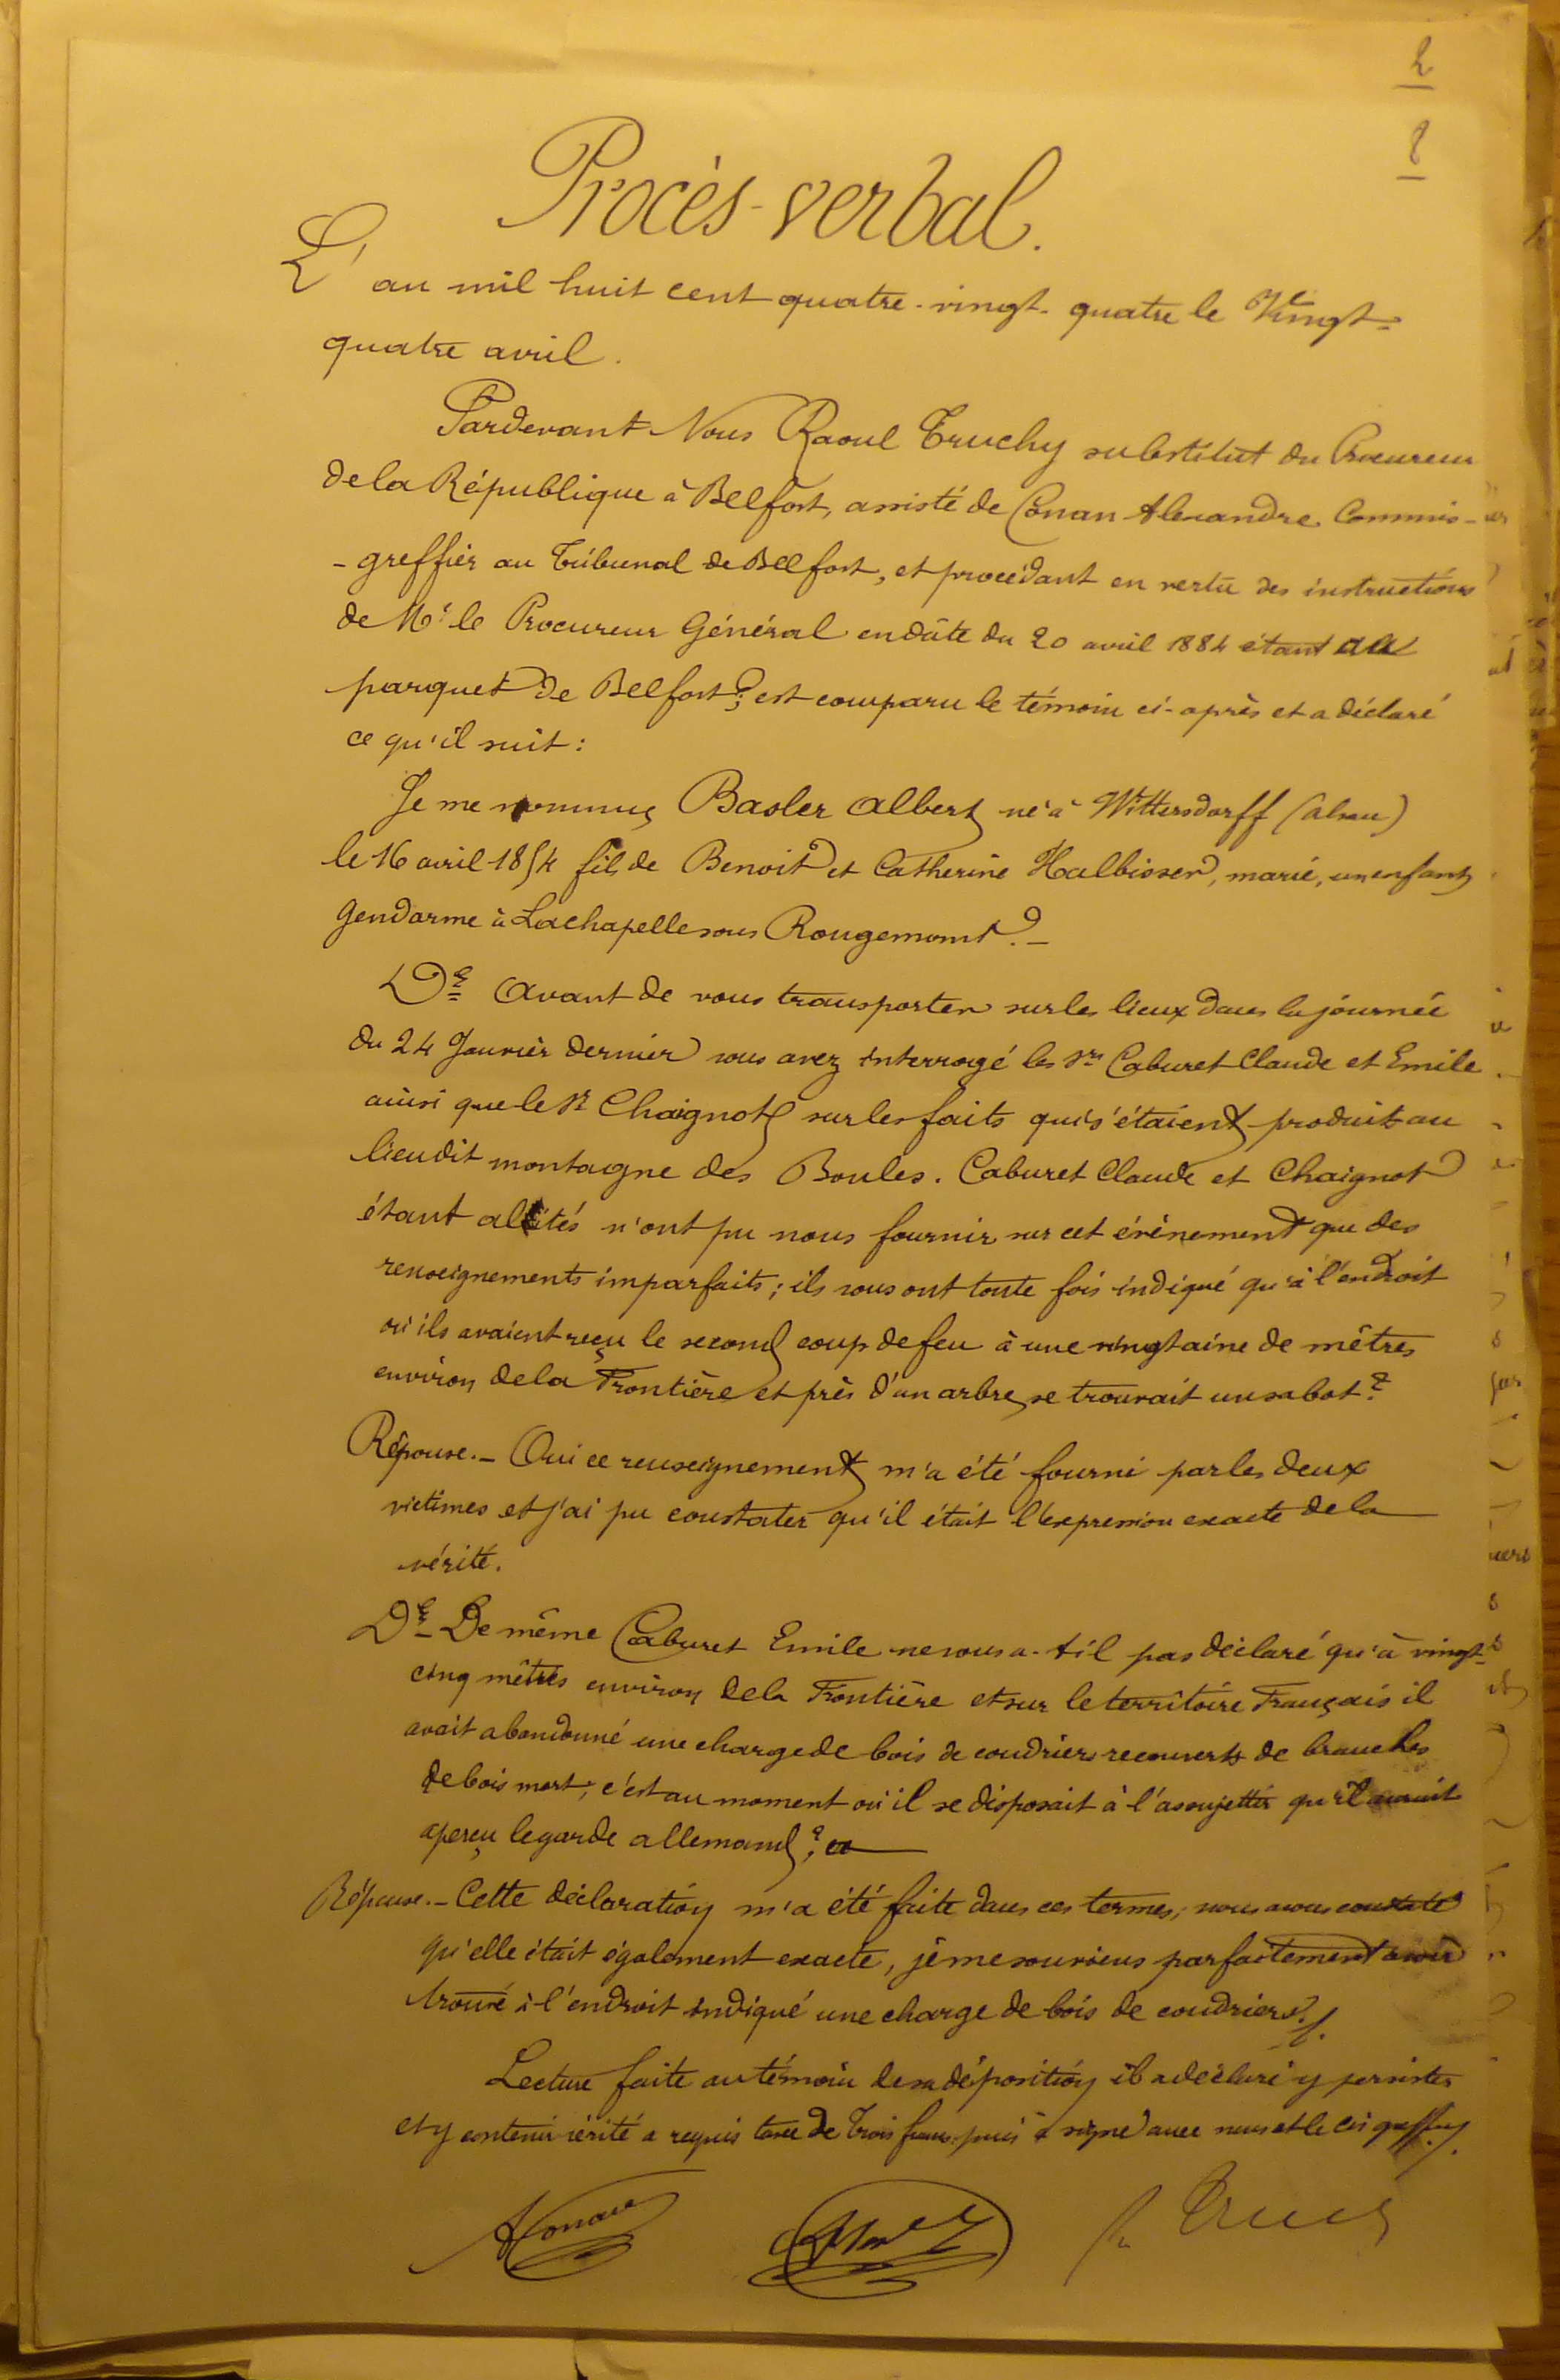 2
8
Procès-verbal.
L'an mil huit cent quatre-vingt-quatre le Vingt-
quatre avril.
Pardevant Nous Raoul Truchy substitut du Procureur
de la République à Belfort, assisté de Conan Alexandre Commis-
-greffier au Tribunal de Belfort, et procédant en vertu des instructions
de Mr le Procureur Général en date du 20 avril 1884 étant au
parquet de Belfort; est comparu le témoin ci-après et a déclaré
ce qu'il suit :
Je me nomme Basler Albert né à Wittersdorff (alsace)
le 16 avril 1854 fils de Benoit et Catherine Halbisser, marié, un enfant
Gendarme à Lachapelle sous Rougemont.-
De Avant de vous transporter sur les lieux dans la journée
du 24 Janvier dernier vous avez interrogé les srs Caburet Claude et Emile
ainsi que le sr Chaignot sur les faits qui s'étaient produits au
lieu dit montagne des Boules. Caburet Claude et Chaignot
étant alités n'ont pu nous fournir sur cet événement que des
renseignements imparfaits; ils vous ont toute fois indiqué qu'à l'endroit
où ils avaient reçu le second coup de feu à une vingtaine de mètres
environ de la Frontière et près d'un arbre se trouvait un sabot ?
Réponse.- Oui ce renseignement m'a été fourni par les deux
victimes et j'ai pu constater qu'il était l'expression exacte de la
vérité.
De- De même Caburet Emile ne vous a-t-il pas déclaré qu'à vingt-
cinq mètres environ de la Frontière et sur le territoire Français il
avait abandonné une charge de bois de coudriers recouverts de branches
de bois mort, c'est au moment où il se disposait à l'assujettir qu'il aurait
aperçu le garde allemand ?
Réponse.- Cette déclaration m'a été faite dans ces termes; nous avons constaté
qu'elle était également exacte, je me souviens parfaitement avoir
trouvé à l'endroit indiqué une charge de bois de coudriers./.
Lecture faite au témoin de sa déposition il a déclaré y persister
et y contenir vérité a requis taxe de trois francs puis a signé avec nous et le Cis greffier./.
AConan